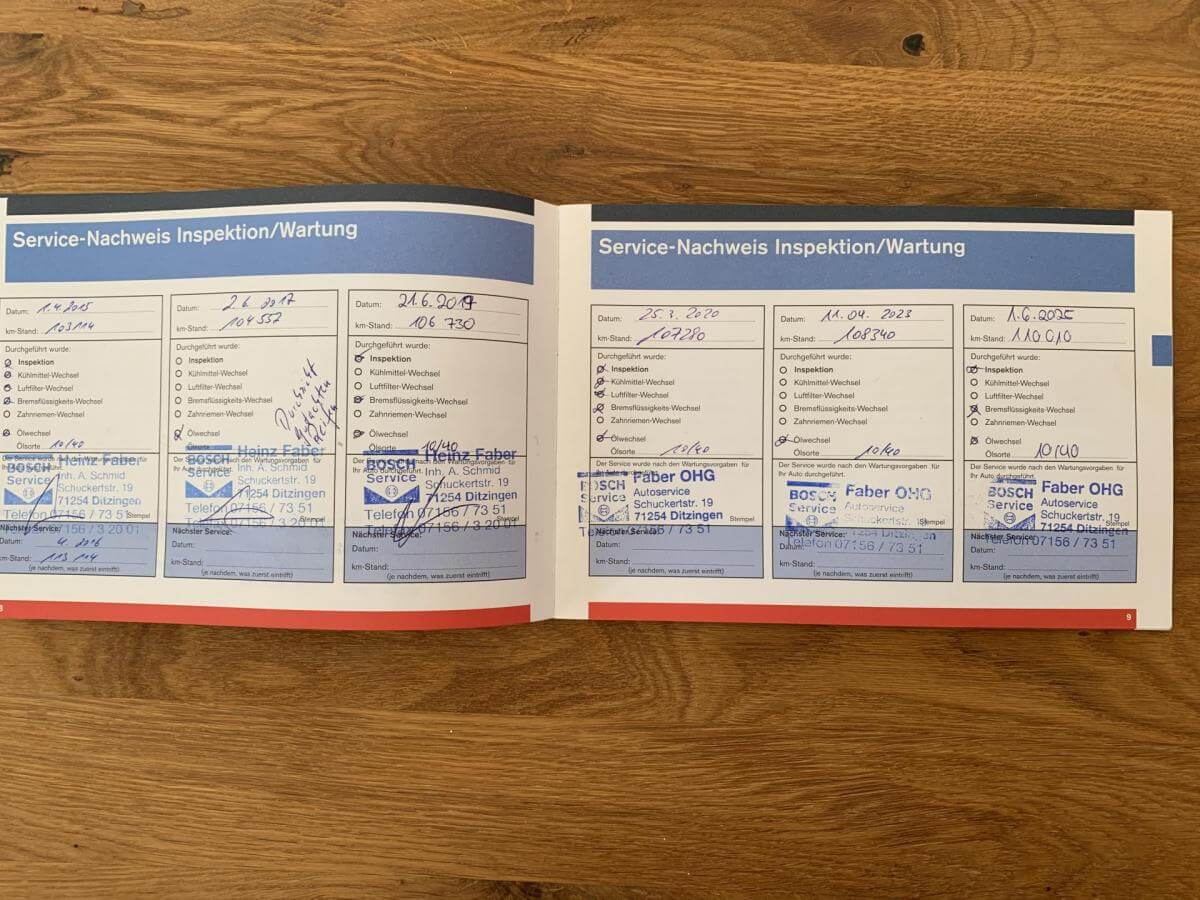 Service-Nachweis Inspektion/Wartung
Datum: 1.4.2015
km-Stand: 103114
Durchgeführt wurde:
Inspektion
Kühlmittel-Wechsel
Luftfilter-Wechsel
Bremsflüssigkeits-Wechsel
Zahnriemen-Wechsel
Ölwechsel
Ölsorte 10/40
Der Service wurde nach den Wartungsvorgaben für
Ihr Auto durchgeführt.
BOSCH Service
Heinz Faber
Inh. A. Schmid
Schuckertstr. 19
71254 Ditzingen
Telefon 07156 / 73 51
Stempel
07156 / 3 20 01
Nächster Service:
Datum: 4. 2016
km-Stand: 113 114
(je nachdem, was zuerst eintrifft)
Datum: 2.6.2017
km-Stand: 104557
Durchgeführt wurde:
Inspektion
Kühlmittel-Wechsel
Luftfilter-Wechsel
Bremsflüssigkeits-Wechsel
Zahnriemen-Wechsel
Durchsicht
Reifen
Ölwechsel
Ölsorte
Der Service wurde nach den Wartungsvorgaben für
Ihr Auto durchgeführt.
BOSCH Service
Heinz Faber
Inh. A. Schmid
Schuckertstr. 19
71254 Ditzingen
Telefon 07156 / 73 51
Stempel
07156 / 3 20 01
Nächster Service:
Datum:
km-Stand:
(je nachdem, was zuerst eintrifft)
Datum: 21.6.2019
km-Stand: 106 730
Durchgeführt wurde:
Inspektion
Kühlmittel-Wechsel
Luftfilter-Wechsel
Bremsflüssigkeits-Wechsel
Zahnriemen-Wechsel
Ölwechsel
Ölsorte 10/40
Der Service wurde nach den Wartungsvorgaben für
Ihr Auto durchgeführt.
BOSCH Service
Heinz Faber
Inh. A. Schmid
Schuckertstr. 19
71254 Ditzingen
Telefon 07156 / 73 51
Stempel
07156 / 3 20 01
Nächster Service:
Datum:
km-Stand:
(je nachdem, was zuerst eintrifft)
8
Service-Nachweis Inspektion/Wartung
Datum: 25.3.2020
km-Stand: 107280
Durchgeführt wurde:
Inspektion
Kühlmittel-Wechsel
Luftfilter-Wechsel
Bremsflüssigkeits-Wechsel
Zahnriemen-Wechsel
Ölwechsel
Ölsorte 10/40
Der Service wurde nach den Wartungsvorgaben für
Ihr Auto durchgeführt.
BOSCH Service
Faber OHG
Autoservice
Schuckertstr. 19
71254 Ditzingen
Stempel
Telefon 07156 / 73 51
Nächster Service:
Datum:
km-Stand:
(je nachdem, was zuerst eintrifft)
Datum: 11.04.2023
km-Stand: 108340
Durchgeführt wurde:
Inspektion
Kühlmittel-Wechsel
Luftfilter-Wechsel
Bremsflüssigkeits-Wechsel
Zahnriemen-Wechsel
Ölwechsel
Ölsorte 10/40
Der Service wurde nach den Wartungsvorgaben für
Ihr Auto durchgeführt.
BOSCH Service
Faber OHG
Autoservice
Schuckertstr. 19
Stempel
71254 Ditzingen
Telefon 07156 / 73 51
Nächster Service:
Datum:
km-Stand:
(je nachdem, was zuerst eintrifft)
Datum: 1.6.2025
km-Stand: 110010
Durchgeführt wurde:
Inspektion
Kühlmittel-Wechsel
Luftfilter-Wechsel
Bremsflüssigkeits-Wechsel
Zahnriemen-Wechsel
Ölwechsel
Ölsorte 10/40
Der Service wurde nach den Wartungsvorgaben für
Ihr Auto durchgeführt.
BOSCH Service
Faber OHG
Autoservice
Schuckertstr. 19
71254 Ditzingen
Stempel
Telefon 07156 / 73 51
Nächster Service:
Datum:
km-Stand:
(je nachdem, was zuerst eintrifft)
9